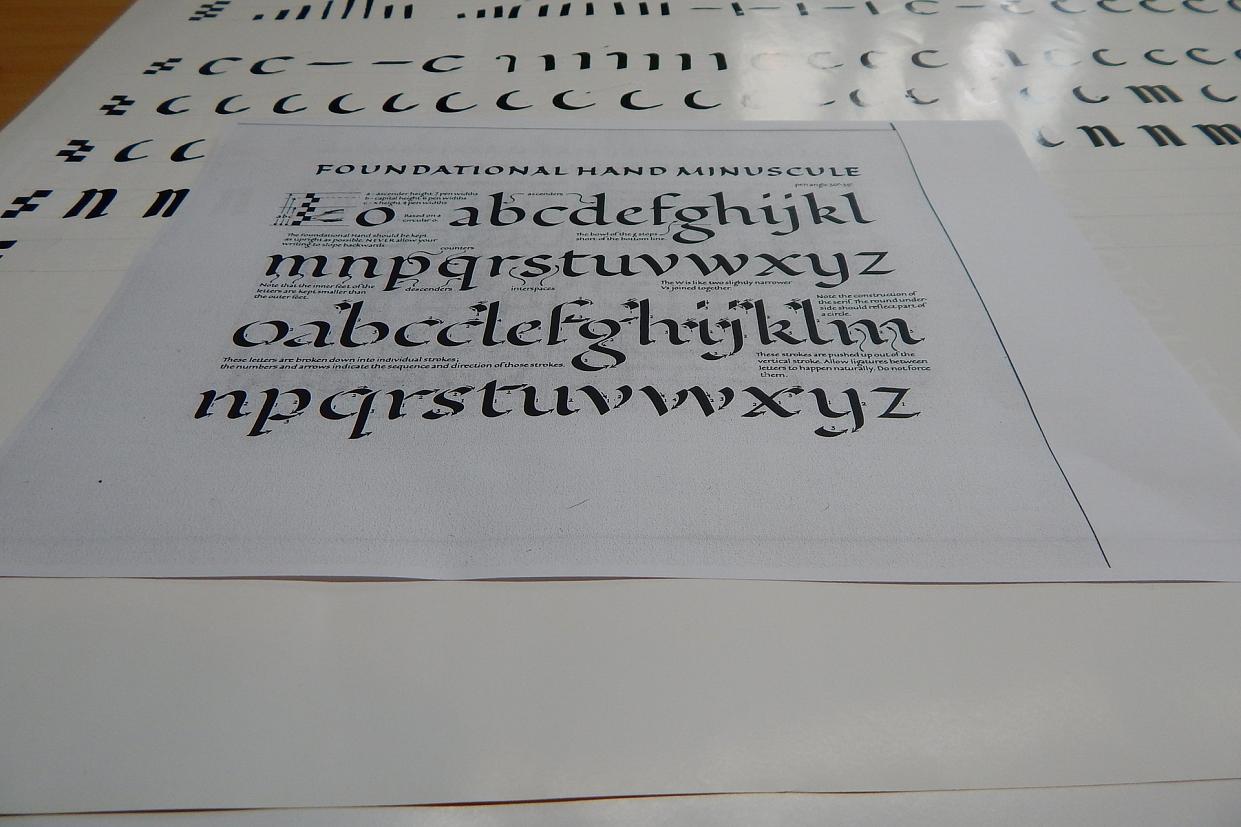 c c — — c ı ı ı ı ı
c c c c c c c c c c
c c
n n
m c
c n n m
FOUNDATIONAL HAND MINUSCULE
pen angle 30°-35°
a - ascender height: 7 pen widths
b - capital height: 6 pen widths
c - x height: 4 pen widths
ascenders
o
Based on a
circular o.
abcdefghijkl
The Foundational Hand should be kept
as upright as possible. NEVER allow your
writing to slope backwards.
The bowl of the g stops
short of the bottom line.
counters
mnpqrstuvwxyz
Note that the inner feet of the
letters are kept smaller than
the outer feet.
descenders
interspaces
The W is like two slightly narrower
Vs joined together.
Note the construction of
the serif. The round under-
side should reflect part of
a circle.
oabcdefghijklm
These letters are broken down into individual strokes;
the numbers and arrows indicate the sequence and direction of those strokes.
These strokes are pushed up out of the
vertical stroke. Allow ligatures between
letters to happen naturally. Do not force
them.
npqrstuvwxyz